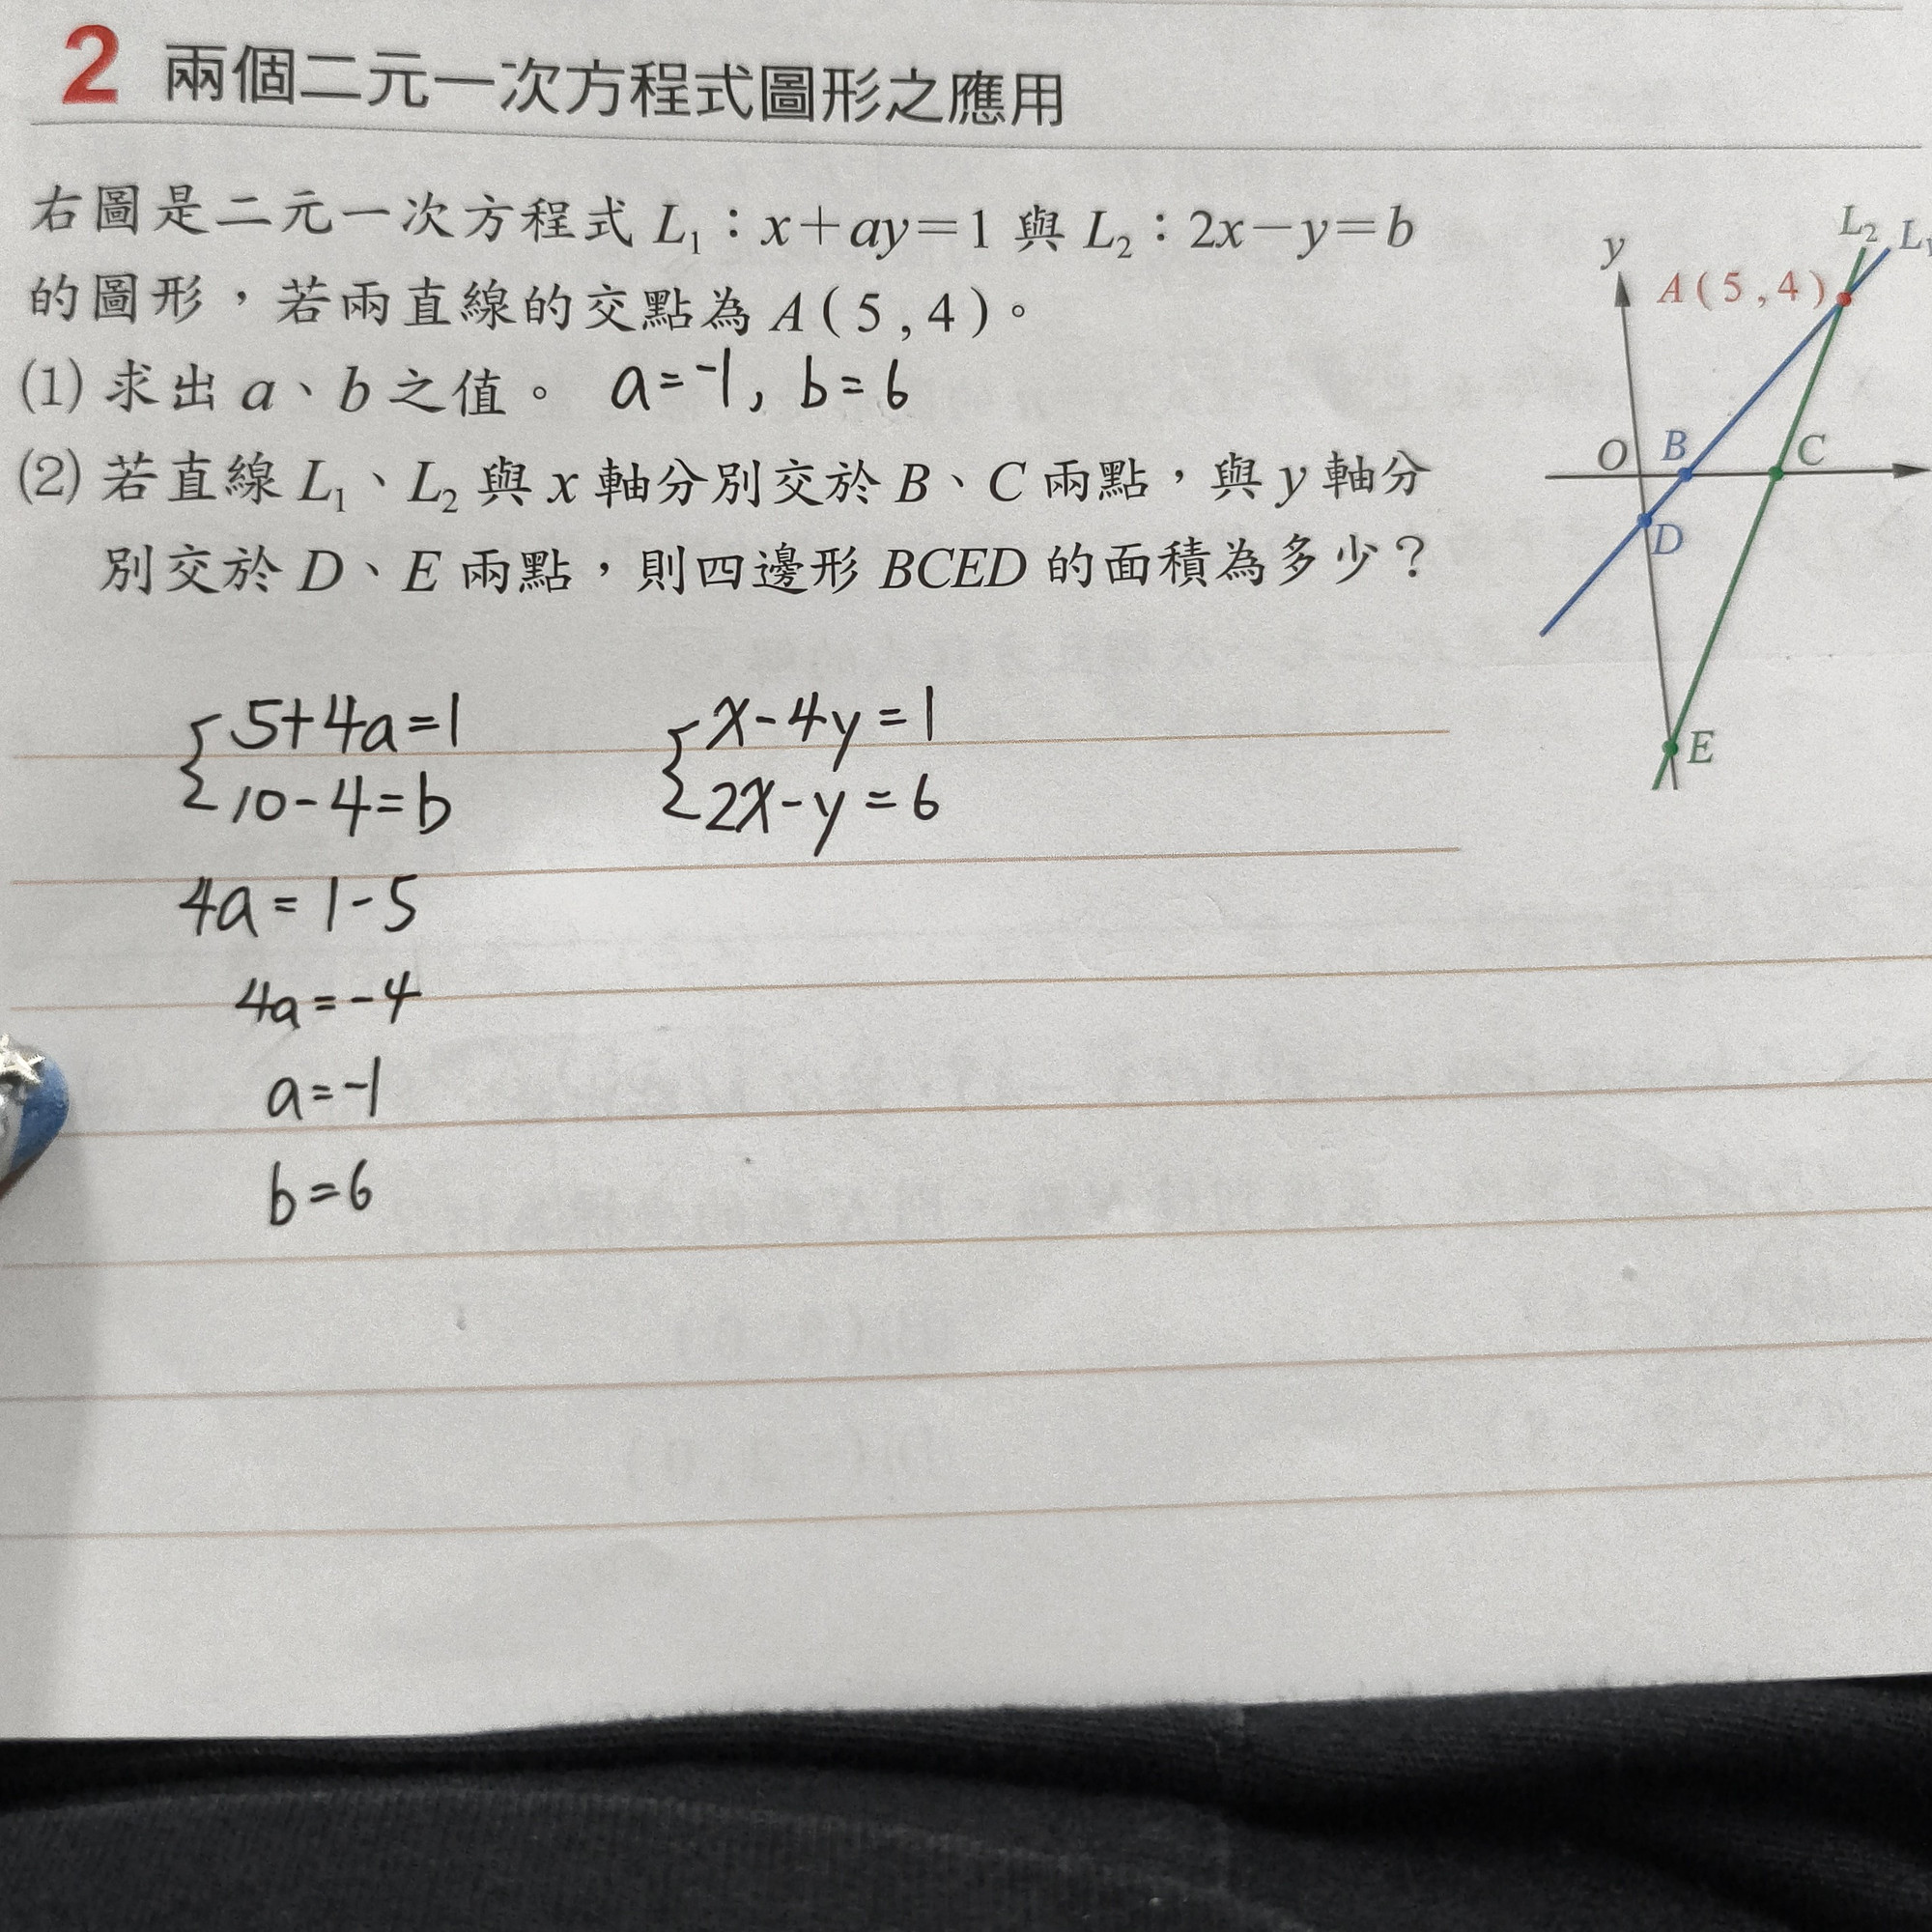 2 兩個二元一次方程式圖形之應用
右圖是二元一次方程式 L₁：x＋ay＝1 與 L₂：2x－y＝b
的圖形，若兩直線的交點為 A(5,4)。
(1) 求出 a、b 之值。 a=-1, b=6
(2) 若直線 L₁、L₂ 與 x 軸分別交於 B、C 兩點，與 y 軸分
別交於 D、E 兩點，則四邊形 BCED 的面積為多少？
y
L₂ L₁
A(5,4)
O B C
D
E
5+4a=1
10-4=b
4a=1-5
4a=-4
a=-1
b=6
x-4y=1
2x-y=6